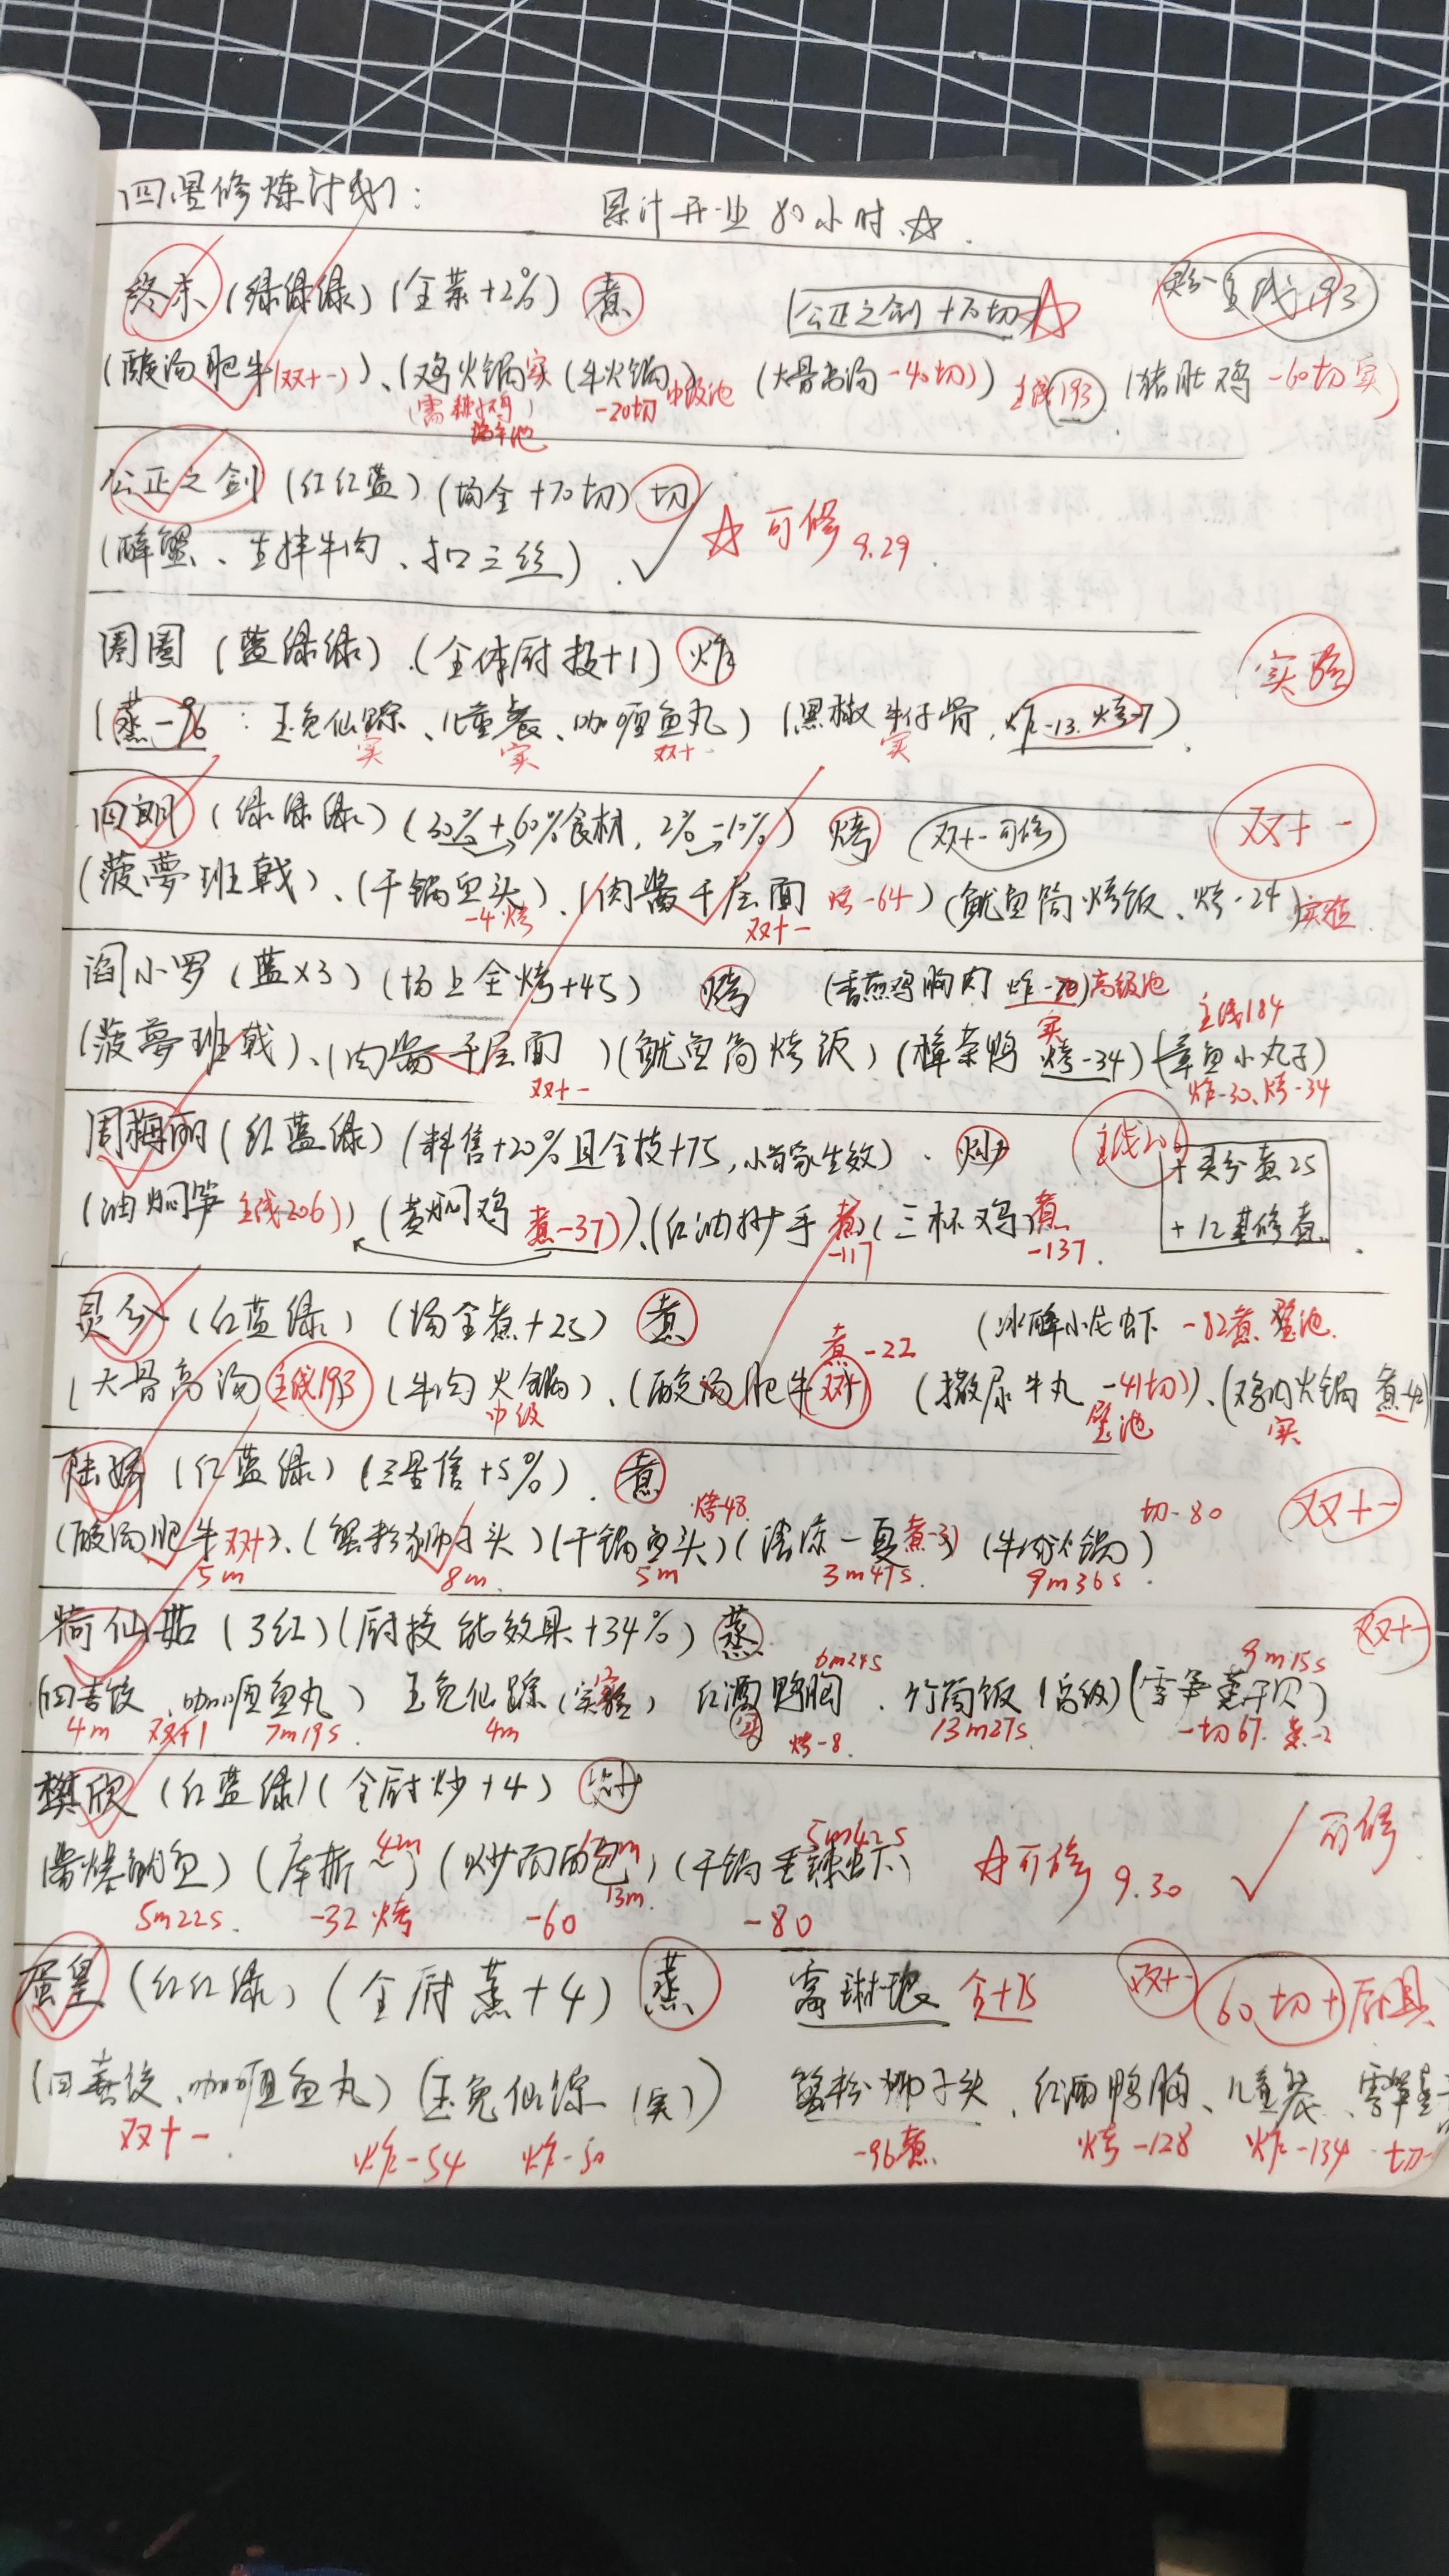 四星修炼计划：
累计开业80小时☆
终末（绿绿绿）（全菜+2%）煮 公正之剑+70切☆ 主线193
（酸汤肥牛（双+一）、（鸡火锅实（牛火锅）（大骨高汤-40切））主线193（猪肚鸡-60切实）
-20切 中级池
公正之剑（红红蓝）（场全+70切）切
（醉蟹、生拌牛肉、扣三丝）✓ ☆可修 9.29
圈圈（蓝绿绿）（全体厨技+1）炸 实验
（蒸-96：玉兔仙踪、儿童餐、咖喱鱼丸）（黑椒牛仔骨，炸-13.烤-7）
实 实 双+ 实
四郎（绿绿绿）（30%→60%食材，2%→10%）烤（双+一可修） 双+一
（菠萝班戟）、（干锅鱼头）、（肉酱千层面 烤-64）（鱿鱼筒烤饭、烤-24）实验
-4烤 双+一
阎小罗（蓝×3）（场上全烤+45）烤（香煎鸡胸肉 炸-20）高级池
主线184
（菠萝班戟）、（肉酱千层面）（鱿鱼筒烤饭）（樟茶鸭 烤-34）（章鱼小丸子）
双+一 实 炸-30、烤-34
周梅丽（红蓝绿）（料售+20%且全技+75，小当家生效）.炒 主线206
+灵兮煮25
（油焖笋 主线206）（黄焖鸡 煮-37）、（红油抄手 煮（三杯鸡 煮
-117 -137
+12基修煮
灵兮（红蓝绿）（场全煮+25）煮（冰醉小龙虾 -82煮 璧池
煮-22
（大骨高汤 主线193（牛肉火锅）、（酸汤肥牛 双+）（撒尿牛丸 -41切）、（鸡肉火锅 煮-42
中级 璧池 实
陆婷（红蓝绿）（三星售+5%）.煮 双+一
烤-48 切-80
（酸汤肥牛双+）、（蟹粉狮子头）（干锅鱼头）（清凉一夏煮-3）（牛肉火锅）
5m 8m 5m 3m47s 9m36s
荷仙姑（3红）（厨技能效果+34%）蒸 双+一
6m24s 9m15s
（四喜饺、咖喱鱼丸）玉兔仙踪（实验）红酒鸭胸、竹筒饭（高级）（雪笋蒸干贝）
4m 双+1 7m19s 4m 实 烤-8 13m27s -切67.蒸-2
樊欣（红蓝绿）（全厨炒+4）炒
42m 5m42s
酱爆鱿鱼）（库折）（炒面面包）（干锅香辣虾）☆可修 9.30 ✓可修
13m
5m22s -32烤 -60 -80
蛋皇（红红绿）（全厨蒸+4）蒸 富琳琅 全+75 双+一 60切+厨具
（四喜饺、咖喱鱼丸）（玉兔仙踪（实））蟹粉狮子头、红酒鸭胸、儿童餐、雪笋蒸
双+一 炸-54 炸-50 -96煮 烤-128 炸-134 切-